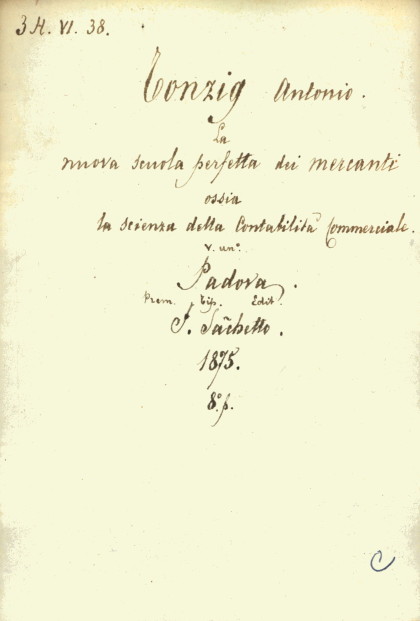 3 H. VI. 38.
Tonzig Antonio.
La
nuova scuola perfetta dei mercanti
ossia
la scienza della Contabilità Commerciale.
v. un°.
Padova.
Prem. Tip. Edit.
F. Sacchetto.
1875.
8°. p.
C